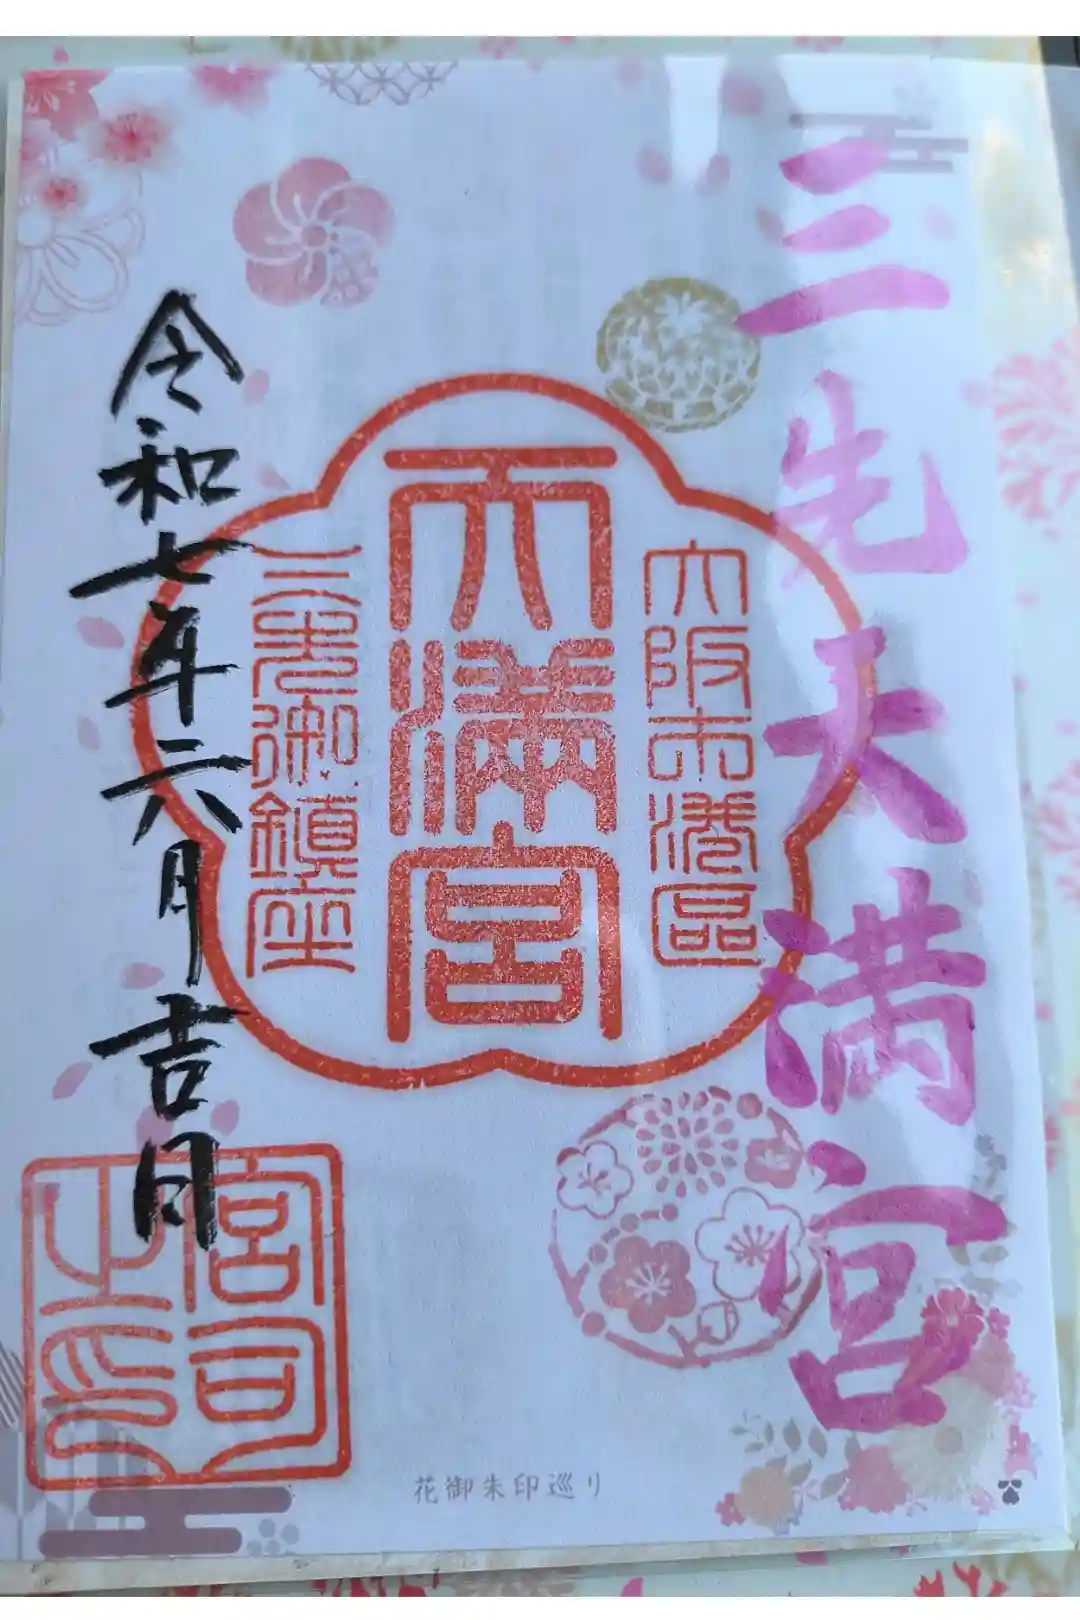 三先天満宮
大阪市港區
天滿宮
三先御鎮座
令和七年六月吉日
宮司
之印
花御朱印巡り